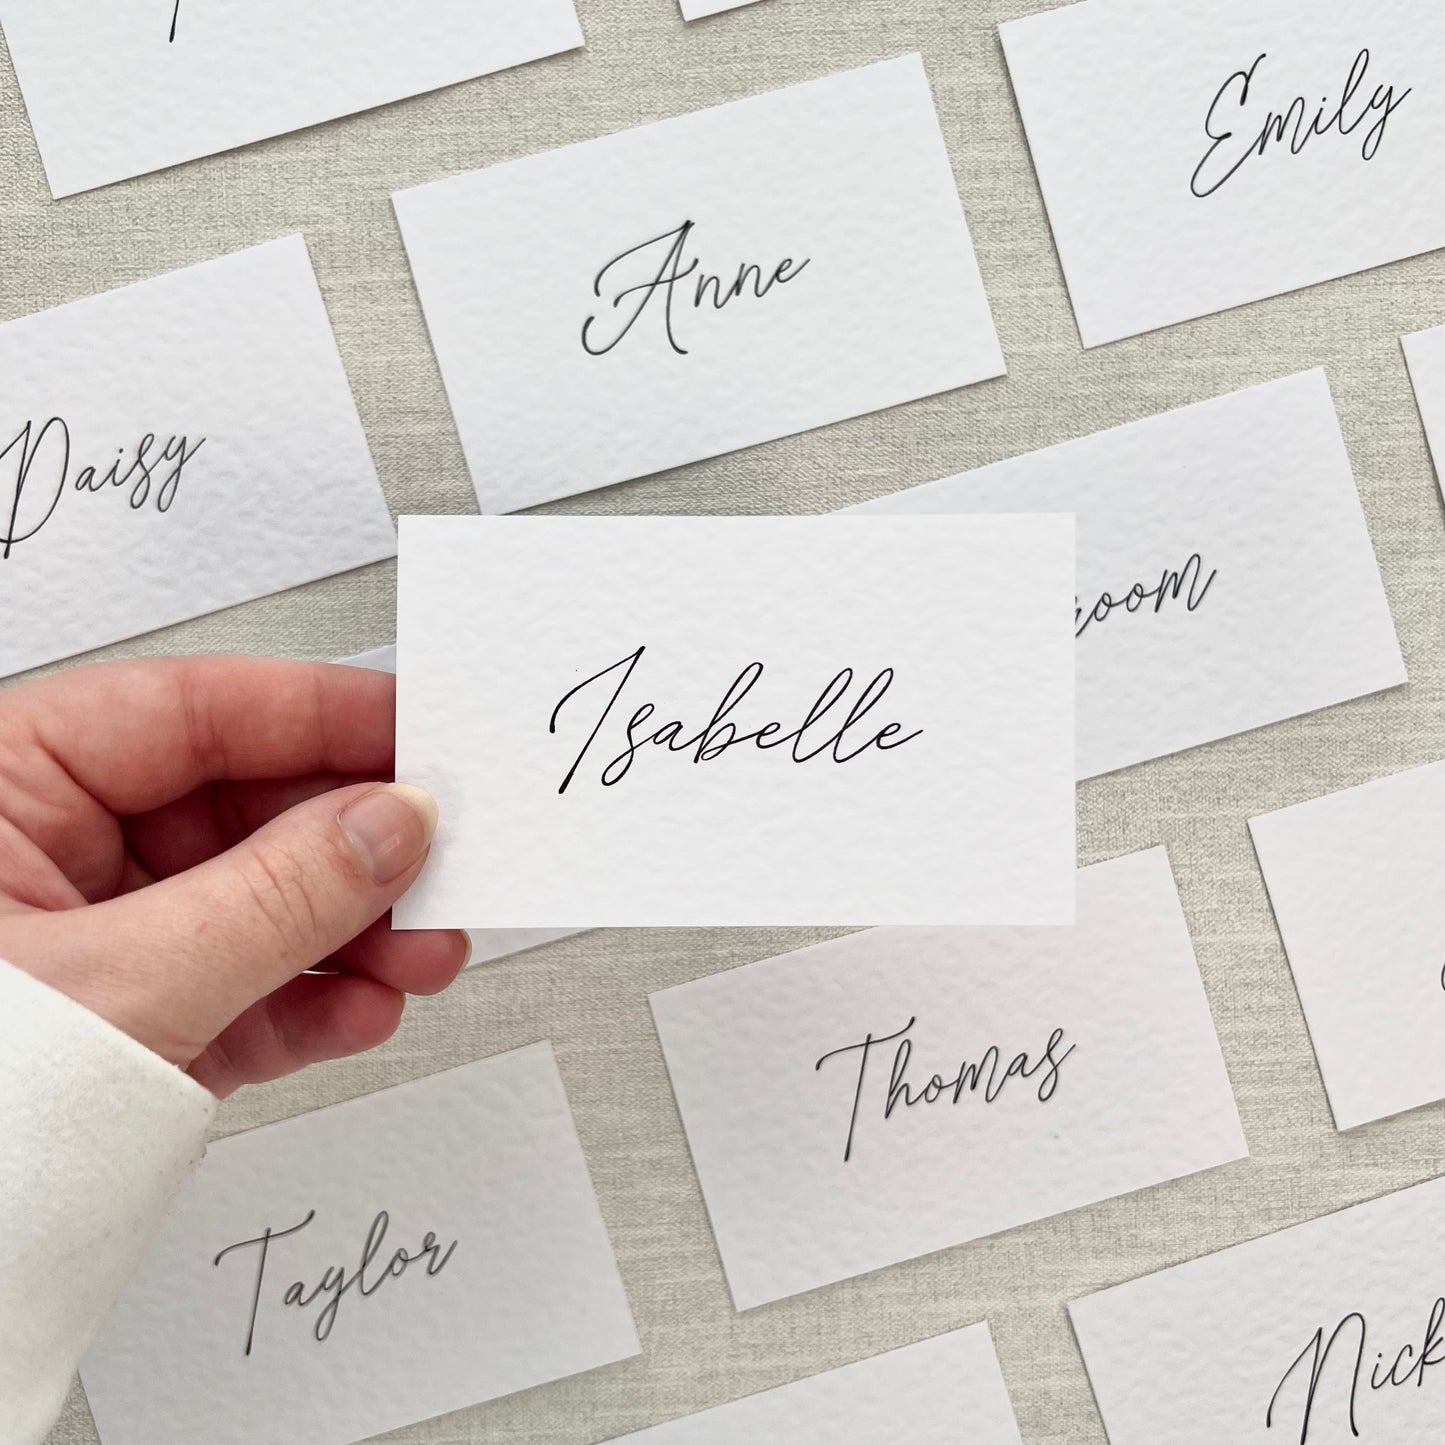 Emily
Anne
Daisy
room
Isabelle
Thomas
Taylor
Nick